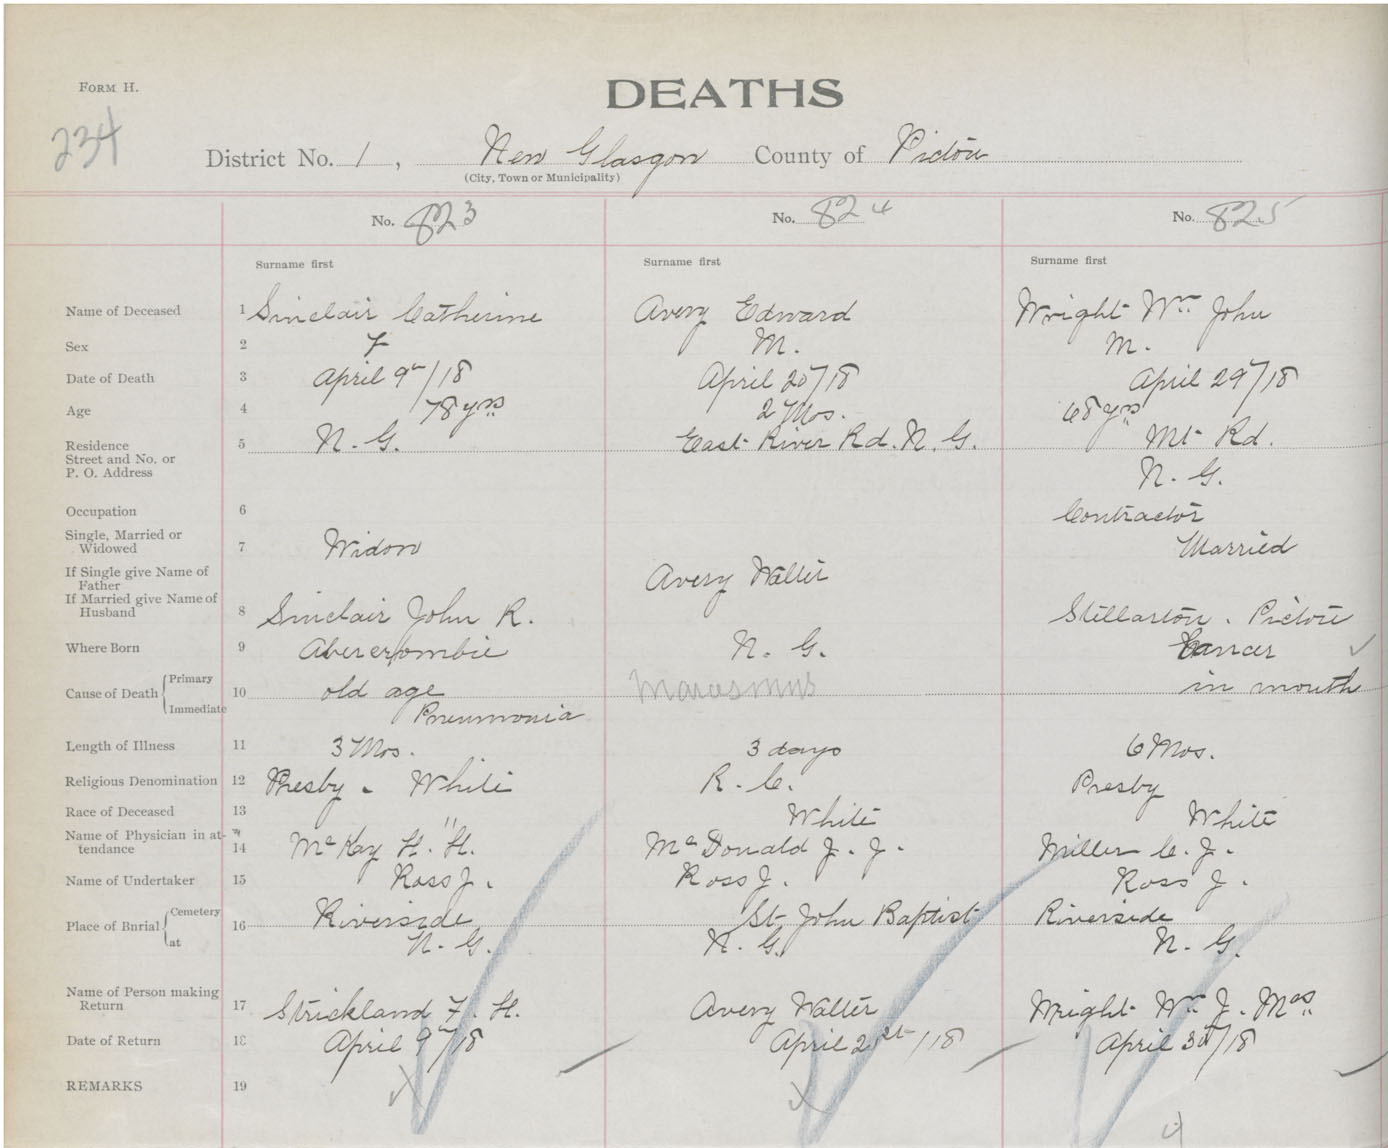 FORM H.
DEATHS
234
District No. 1, New Glasgow County of Pictou
(City, Town or Municipality)
No. 823 No. 824 No. 825
Surname first Surname first Surname first
Name of Deceased 1 Sinclair Catherine Avery Edward Wright Wm John
Sex 2 F M. M.
Date of Death 3 April 9th/18 April 20/18 April 29/18
Age 4 78 yrs 2 Mos. 68 yrs
Residence Street and No. or P. O. Address 5 N. G. East River Rd. N. G. Mt Rd.
N. G.
Occupation 6 Contractor
Single, Married or Widowed 7 Widow Married
If Single give Name of Father Avery Walter
If Married give Name of Husband 8 Sinclair John R. Stellarton. Pictou
Where Born 9 Abercrombie N. G. Cancer
Cause of Death Primary 10 old age Marasmus in mouth
Immediate Pneumonia
Length of Illness 11 3 Mos. 3 days 6 Mos.
Religious Denomination 12 Presby - White R. C. Presby
Race of Deceased 13 White White
Name of Physician in attendance 14 McKay H. H. McDonald J. J. Miller C. J.
Name of Undertaker 15 Ross J. Ross J. Ross J.
Place of Burial Cemetery 16 Riverside St. John Baptist Riverside
at N. G. N. G. N. G.
Name of Person making Return 17 Strickland F. H. Avery Walter Wright Wm J. Mrs
Date of Return 18 April 9th/18 April 21st/18 April 30/18
REMARKS 19